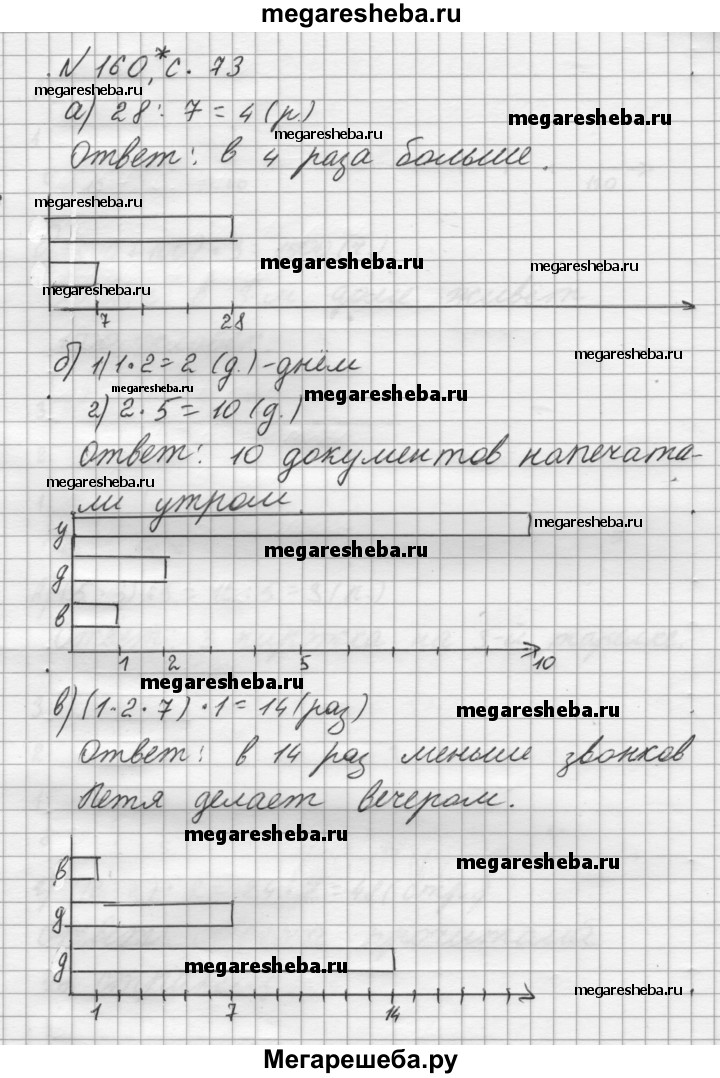 megaresheba.ru
N 160,* с. 73
megaresheba.ru
а) 28 : 7 = 4 (р.)
megaresheba.ru
megaresheba.ru
Ответ: в 4 раза больше.
megaresheba.ru
megaresheba.ru
megaresheba.ru
megaresheba.ru
7 28
б) 1) 1·2=2 (д.)-днём
megaresheba.ru
megaresheba.ru
megaresheba.ru
2) 2·5=10 (д.)
Ответ: 10 документов напечата-
megaresheba.ru
ли утром.
у
megaresheba.ru
megaresheba.ru
д
в
1 2 5 10
megaresheba.ru
в) (1·2·7)·1=14(раз)
megaresheba.ru
Ответ: в 14 раз меньше звонков
Петя делает вечером.
megaresheba.ru
в
megaresheba.ru
д
д
megaresheba.ru
megaresheba.ru
1 7 14
Мегарешеба.ру